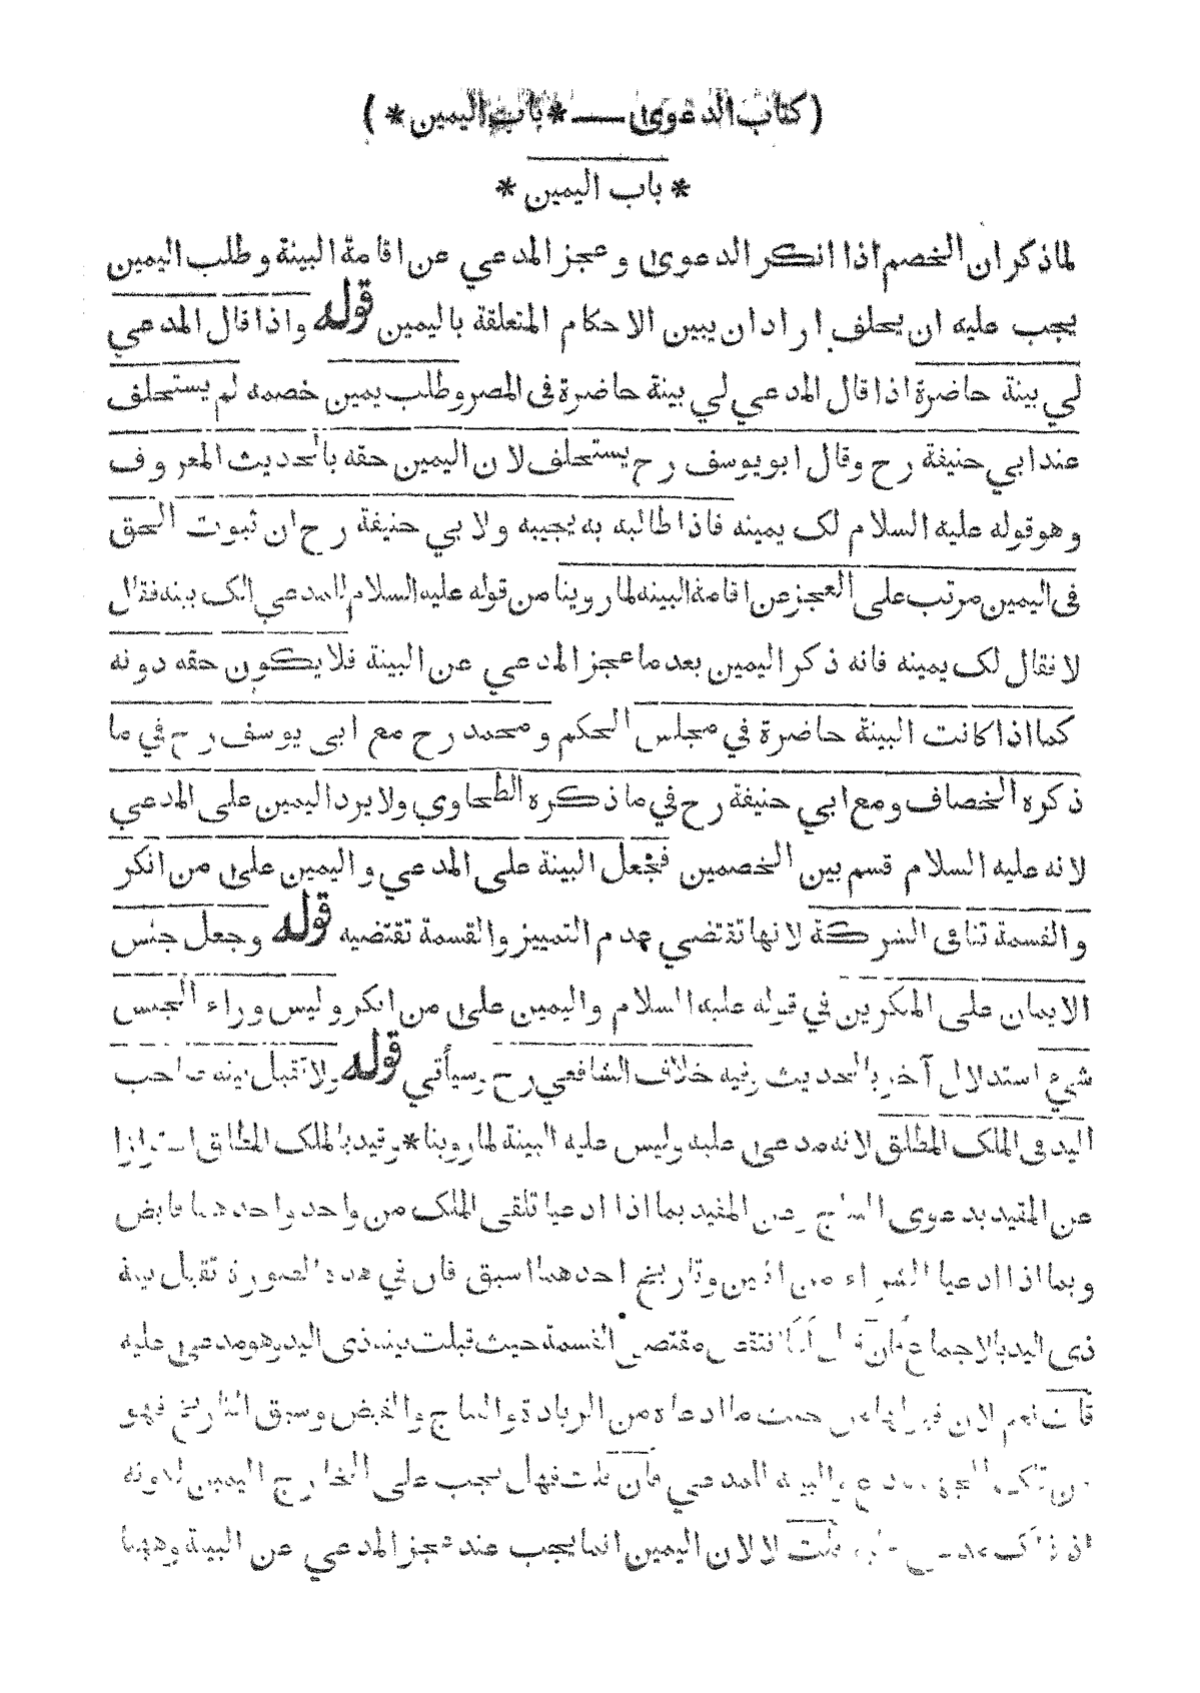 ( كتاب الدعوى — * باب اليمين * )
* باب اليمين *
لما ذكر ان الخصم اذا انكر الدعوى و عجز المدعي عن اقامة البينة و طلب اليمين
يجب عليه ان يحلف اراد ان يبين الاحكام المتعلقة باليمين قوله واذا قال المدعي
لي بينة حاضرة اذا قال المدعي لي بينة حاضرة فى المصر وطلب يمين خصمه لم يستحلف
عند ابي حنيفة رح وقال ابو يوسف رح يستحلف لان اليمين حقه بالحديث المعروف
و هو قوله عليه السلام لك يمينه فاذا طالبه به يجيبه و لا بي حنيفة رح ان ثبوت الحق
فى اليمين مرتب على العجز عن اقامة البينة لما روينا من قوله عليه السلام للمدعي الك بينه فقال
لا فقال لك يمينه فانه ذكر اليمين بعد ما عجز المدعي عن البينة فلا يكون حقه دونه
كما اذا كانت البينة حاضرة في مجلس الحكم و محمد رح مع ابى يوسف رح في ما
ذكره الخصاف و مع ابي حنيفة رح في ما ذكره الطحاوي ولا يرد اليمين على المدعي
لانه عليه السلام قسم بين الخصمين فجعل البينة على المدعي و اليمين على من انكر
و القسمة تنافى الشركة لانها تقتضي عدم التمييز والقسمة تقتضيه قوله وجعل جنس
الايمان على المنكرين في قوله عليه السلام واليمين على من انكر و ليس وراء الجنس
شيء استدلال آخر بالحديث وفيه خلاف الشافعي رح وسيأتي قوله ولا تقبل بينه صاحب
اليد فى الملك المطلق لانه مدعى عليه وليس عليه البينة لما روينا * وقيد بالملك المطلق احترازا
عن المقيد بدعوى النتاج وعن المقيد بما اذا ادعيا تلقى الملك من واحد واحدهما قابض
و بما اذا ادعيا الشراء من اثنين وتاريخ احدهما اسبق فان في هذه الصورة تقبل بينة
ذى اليد بالاجماع فان تنتقض مقتضى القسمة حيث قبلت بينة ذى اليد وهو مدعى عليه
من الزيادة و النتاج و القبض و سبق التاريخ فهو
المدعي فان قلت فهل يجب على الخارج اليمين لكونه
قلت لا لان اليمين انما يجب عند عجز المدعي عن البينة وههنا